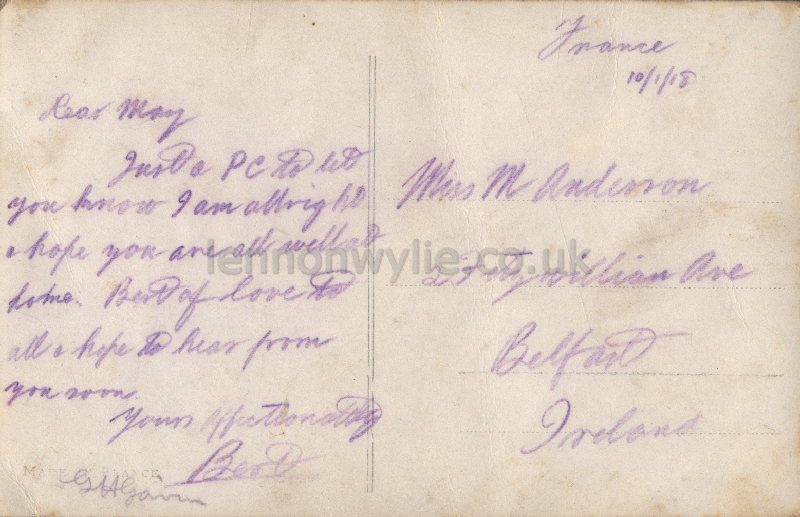 France
10/1/18
Dear May
Just a PC to let
you know I am allright
& hope you are all well at
home. Best of love to
all & hope to hear from
you soon.
Yours Affectionately
Bert
Miss M Anderson
2 Fitzwilliam Ave
Belfast
Ireland
lennonwylie.co.uk
MADE FRANCE
G H Gavin